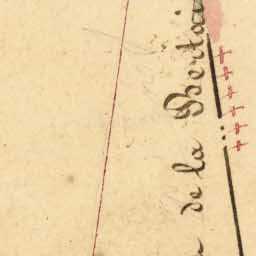 de la Bertai